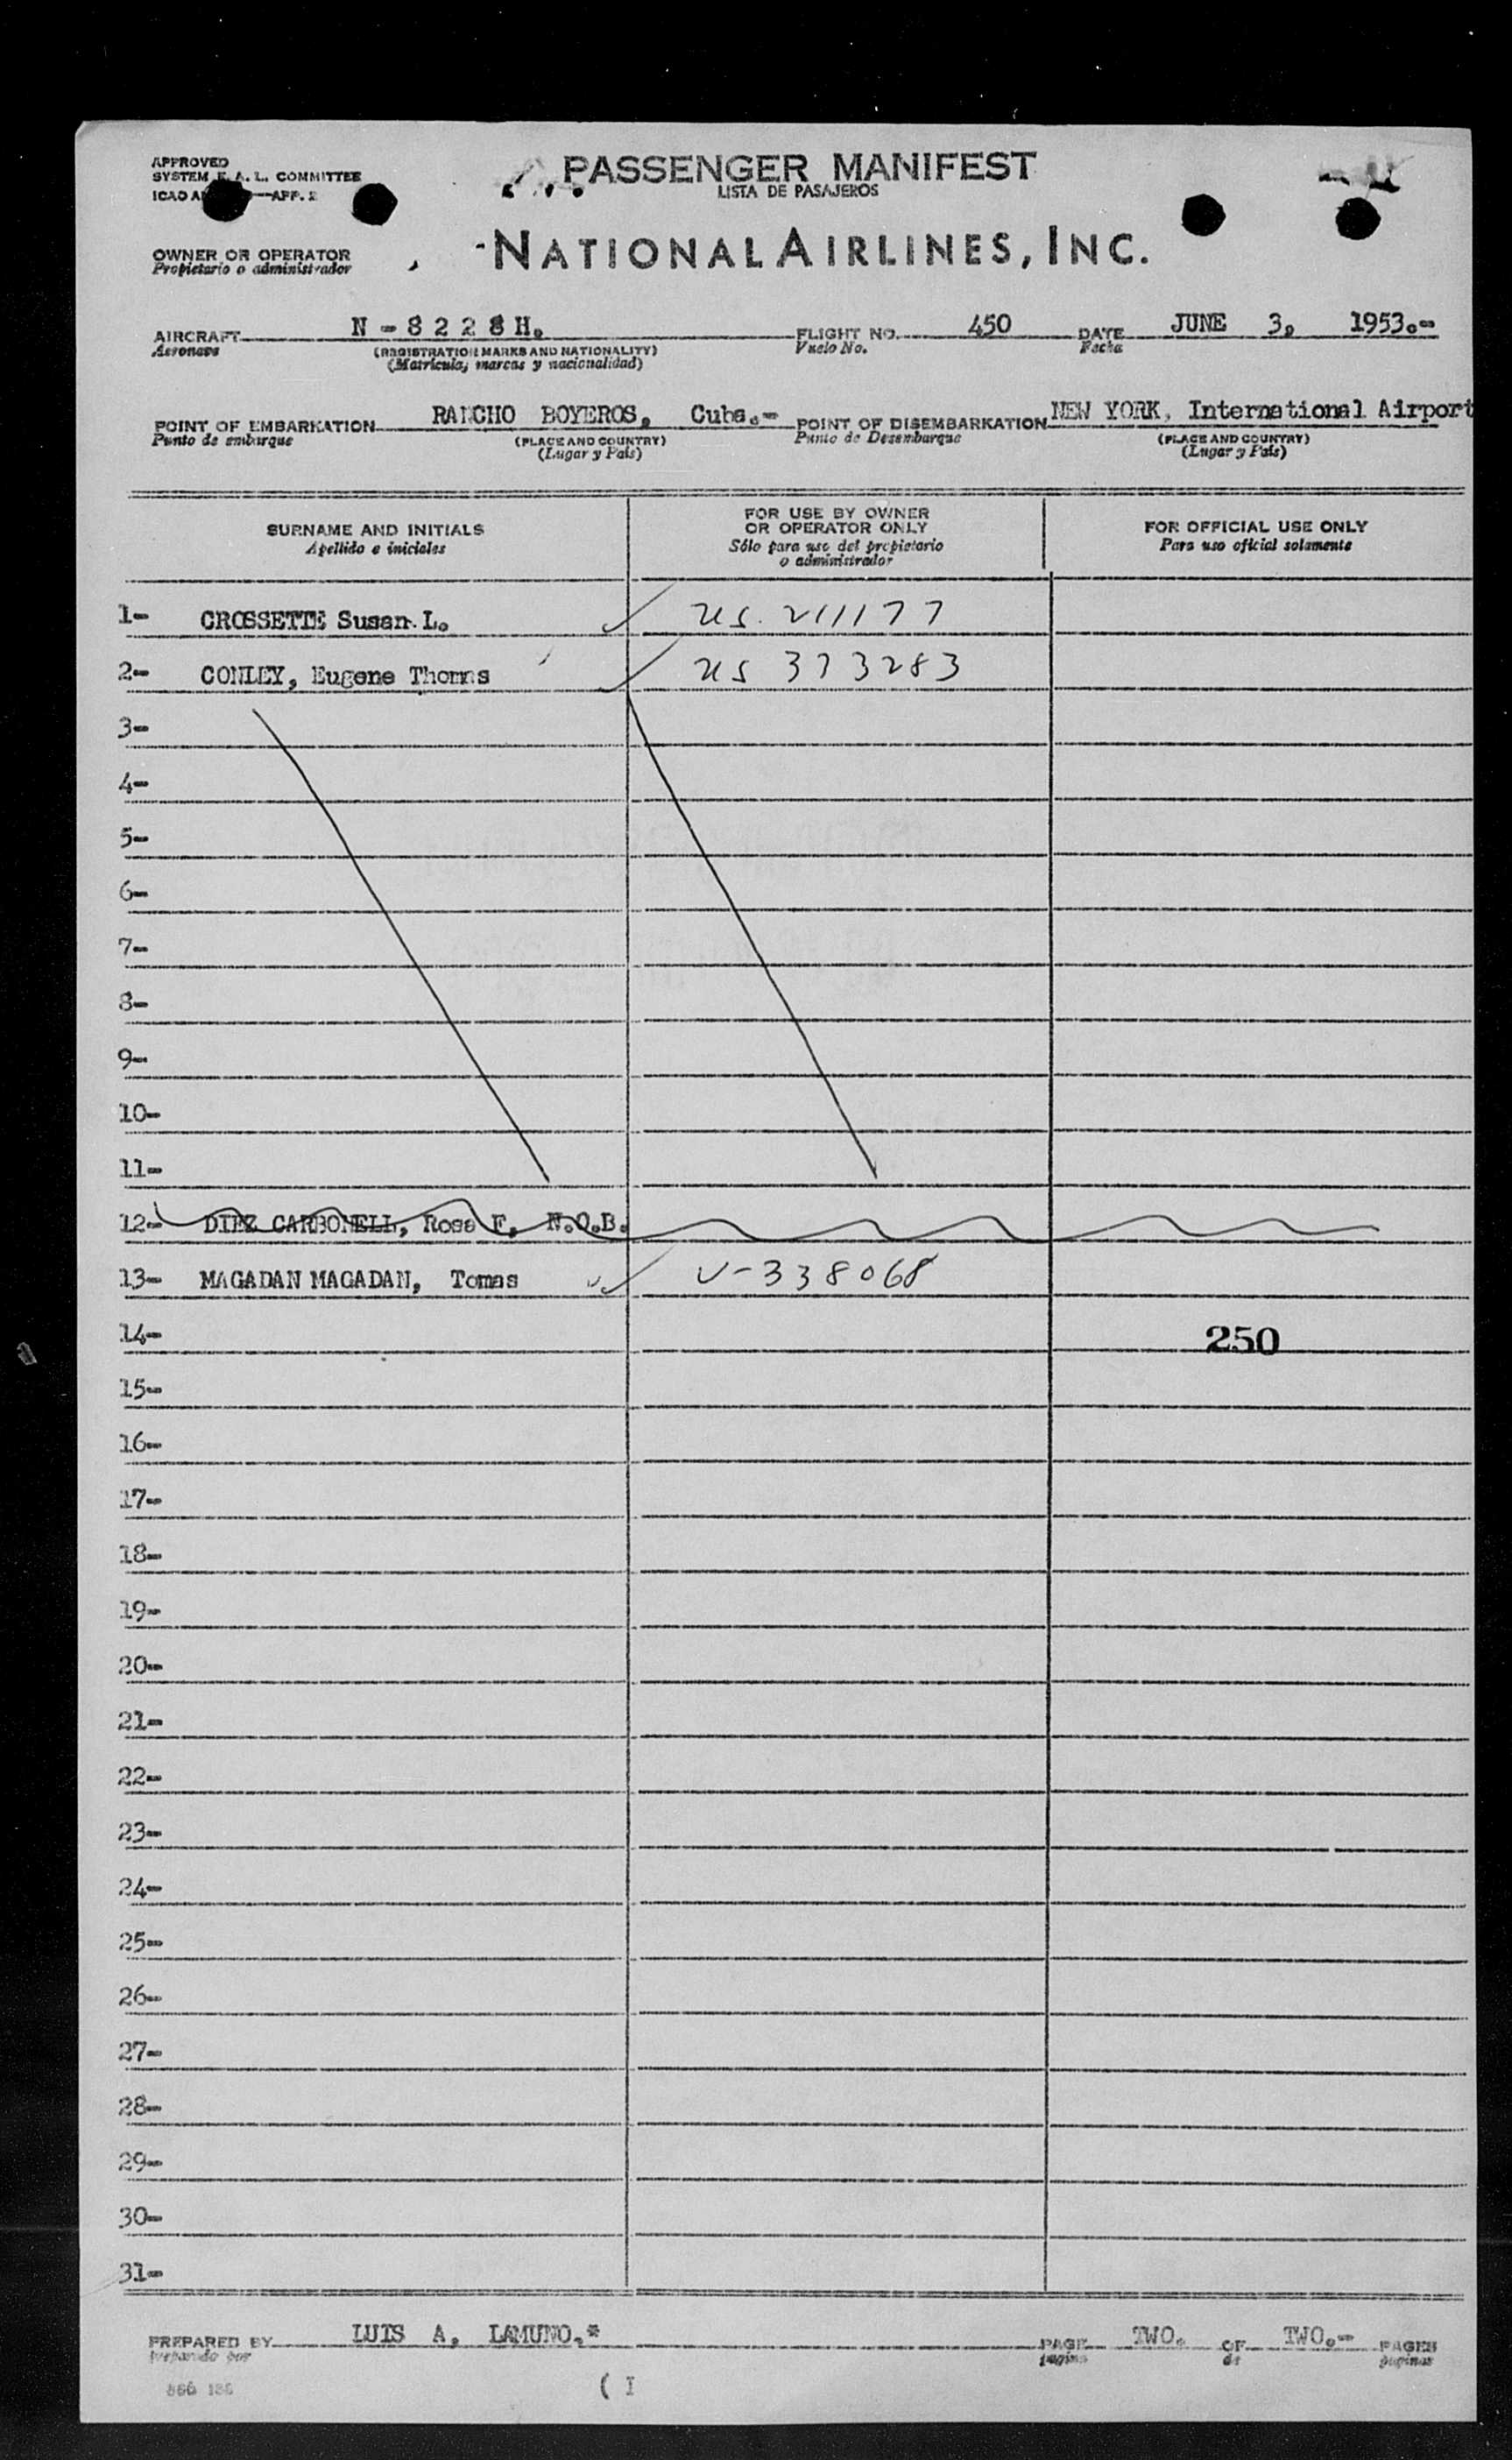 APPROVED
SYSTEM F. A. L. COMMITTEE
ICAO —APP. 2
PASSENGER MANIFEST
LISTA DE PASAJEROS
OWNER OR OPERATOR
Propietario o administrador
NATIONAL AIRLINES, INC.
AIRCRAFT N - 8 2 2 8 H. FLIGHT NO. 450 DATE JUNE 3, 1953.-
Aeronave (REGISTRATION MARKS AND NATIONALITY) Vuelo No. Fecha
(Matricula, marcas y nacionalidad)
POINT OF EMBARKATION RANCHO BOYEROS, Cuba.- POINT OF DISEMBARKATION NEW YORK, International Airport
Punto de embarque (PLACE AND COUNTRY) Punto de Desembarque (PLACE AND COUNTRY)
(Lugar y País) (Lugar y País)
SURNAME AND INITIALS
Apellido e iniciales
FOR USE BY OWNER
OR OPERATOR ONLY
Sólo para uso del propietario
o administrador
FOR OFFICIAL USE ONLY
Para uso oficial solamente
1- CROSSETTE Susan L. US. 211177
2- CONLEY, Eugene Thomas US 373283
3-
4-
5-
6-
7-
8-
9-
10-
11-
12- DIEZ CARBONELL, Rosa F, N.O.B.
13- MAGADAN MAGADAN, Tomas V-338068
14- 250
15-
16-
17-
18-
19-
20-
21-
22-
23-
24-
25-
26-
27-
28-
29-
30-
31-
PREPARED BY LUIS A. LAMUNO.* PAGE TWO. OF TWO.- PAGES
Preparado por pagina de paginas
( I